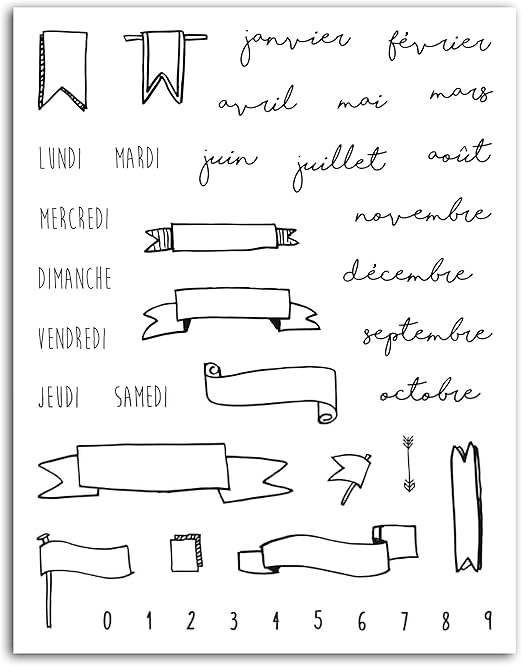 janvier février
avril mai mars
LUNDI MARDI juin juillet août
MERCREDI novembre
DIMANCHE décembre
VENDREDI septembre
JEUDI SAMEDI octobre
0 1 2 3 4 5 6 7 8 9